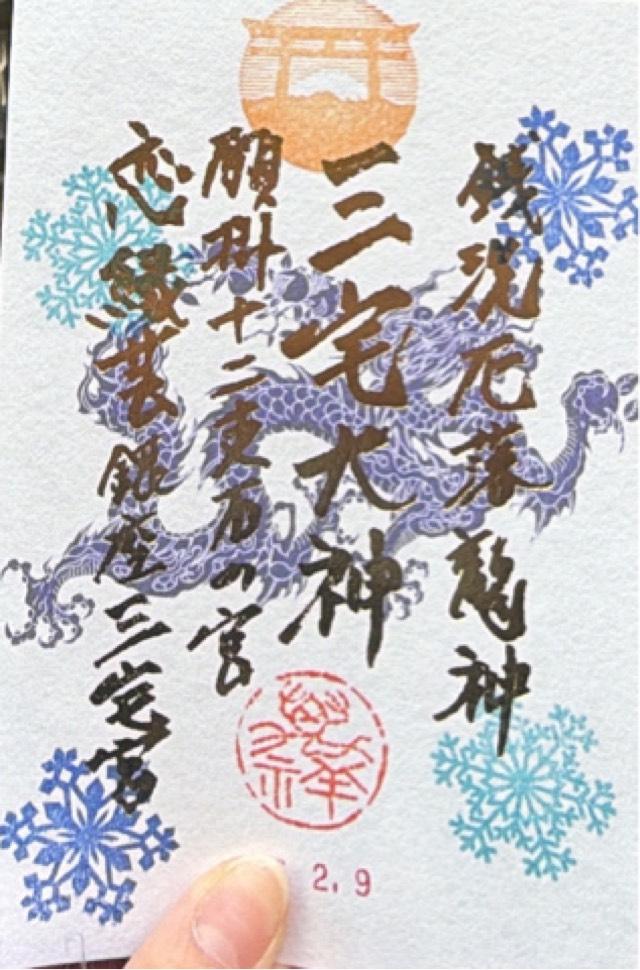 銭洗厄落龍神
三宅大神
願掛十二支方の宮
恋縁芸銀座三宅宮
2.9